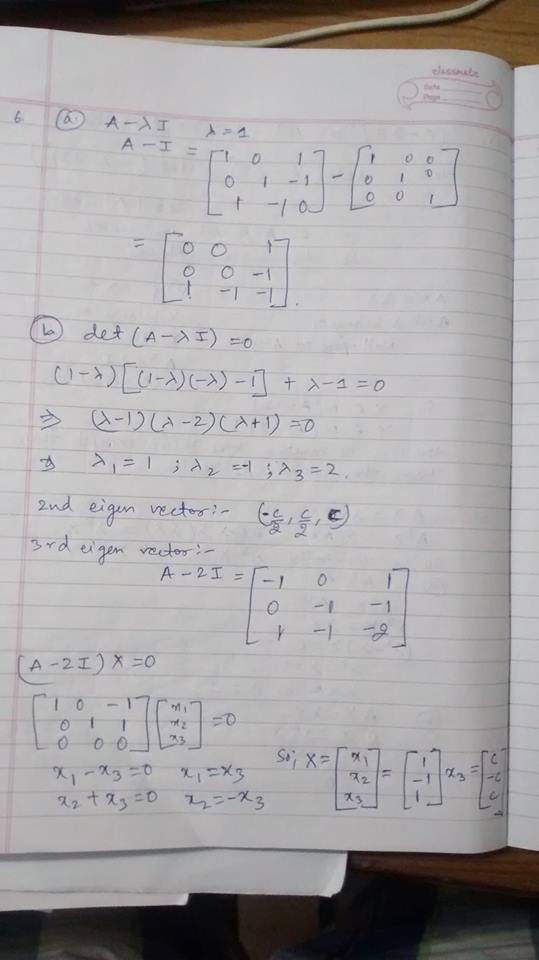 classmate
Date
Page
6. (a) A-λI λ=1
A-I = [1 0 1; 0 1 -1; 1 -1 0] - [1 0 0; 0 1 0; 0 0 1]
= [0 0 1; 0 0 -1; 1 -1 -1].
(b) det(A-λI)=0
(1-λ)[(1-λ)(-λ)-1] + λ-1=0
⇒ (λ-1)(λ-2)(λ+1)=0
⇒ λ₁=1; λ₂=-1; λ₃=2.
2nd eigen vector:- (-c/2, c/2, c)
3rd eigen vector:-
A-2I = [-1 0 1; 0 -1 -1; 1 -1 -2]
(A-2I)X=0
[1 0 -1; 0 1 1; 0 0 0] [x₁; x₂; x₃] =0
x₁-x₃=0 x₁=x₃
x₂+x₃=0 x₂=-x₃
So, X= [x₁; x₂; x₃] = [1; -1; 1] x₃ = [c; -c; c]